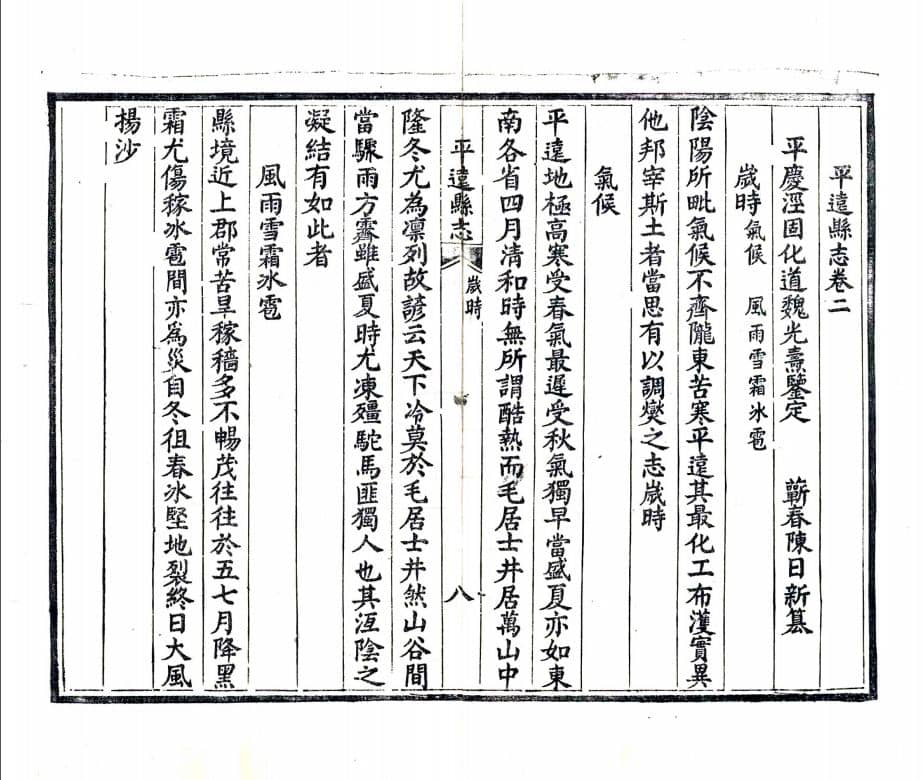 平遠縣志卷二
平慶涇固化道魏光燾鑒定 蘄春陳日新纂
歲時氣候 風雨雪霜冰雹
陰陽所毗氣候不齊隴東苦寒平遠其最化工布濩實異
他邦宰斯土者當思有以調燮之志歲時
氣候
平遠地極高寒受春氣最遲受秋氣獨早當盛夏亦如東
南各省四月清和時無所謂酷熱而毛居士井居萬山中
平遠縣志 歲時 八
隆冬尤為凛列故諺云天下冷莫於毛居士井然山谷間
當驟雨方霽雖盛夏時尤凍殭駝馬匪獨人也其沍陰之
凝結有如此者
風雨雪霜冰雹
縣境近上郡常苦旱稼穡多不暢茂往往於五七月降黑
霜尤傷稼冰雹間亦為災自冬徂春冰堅地裂終日大風
揚沙